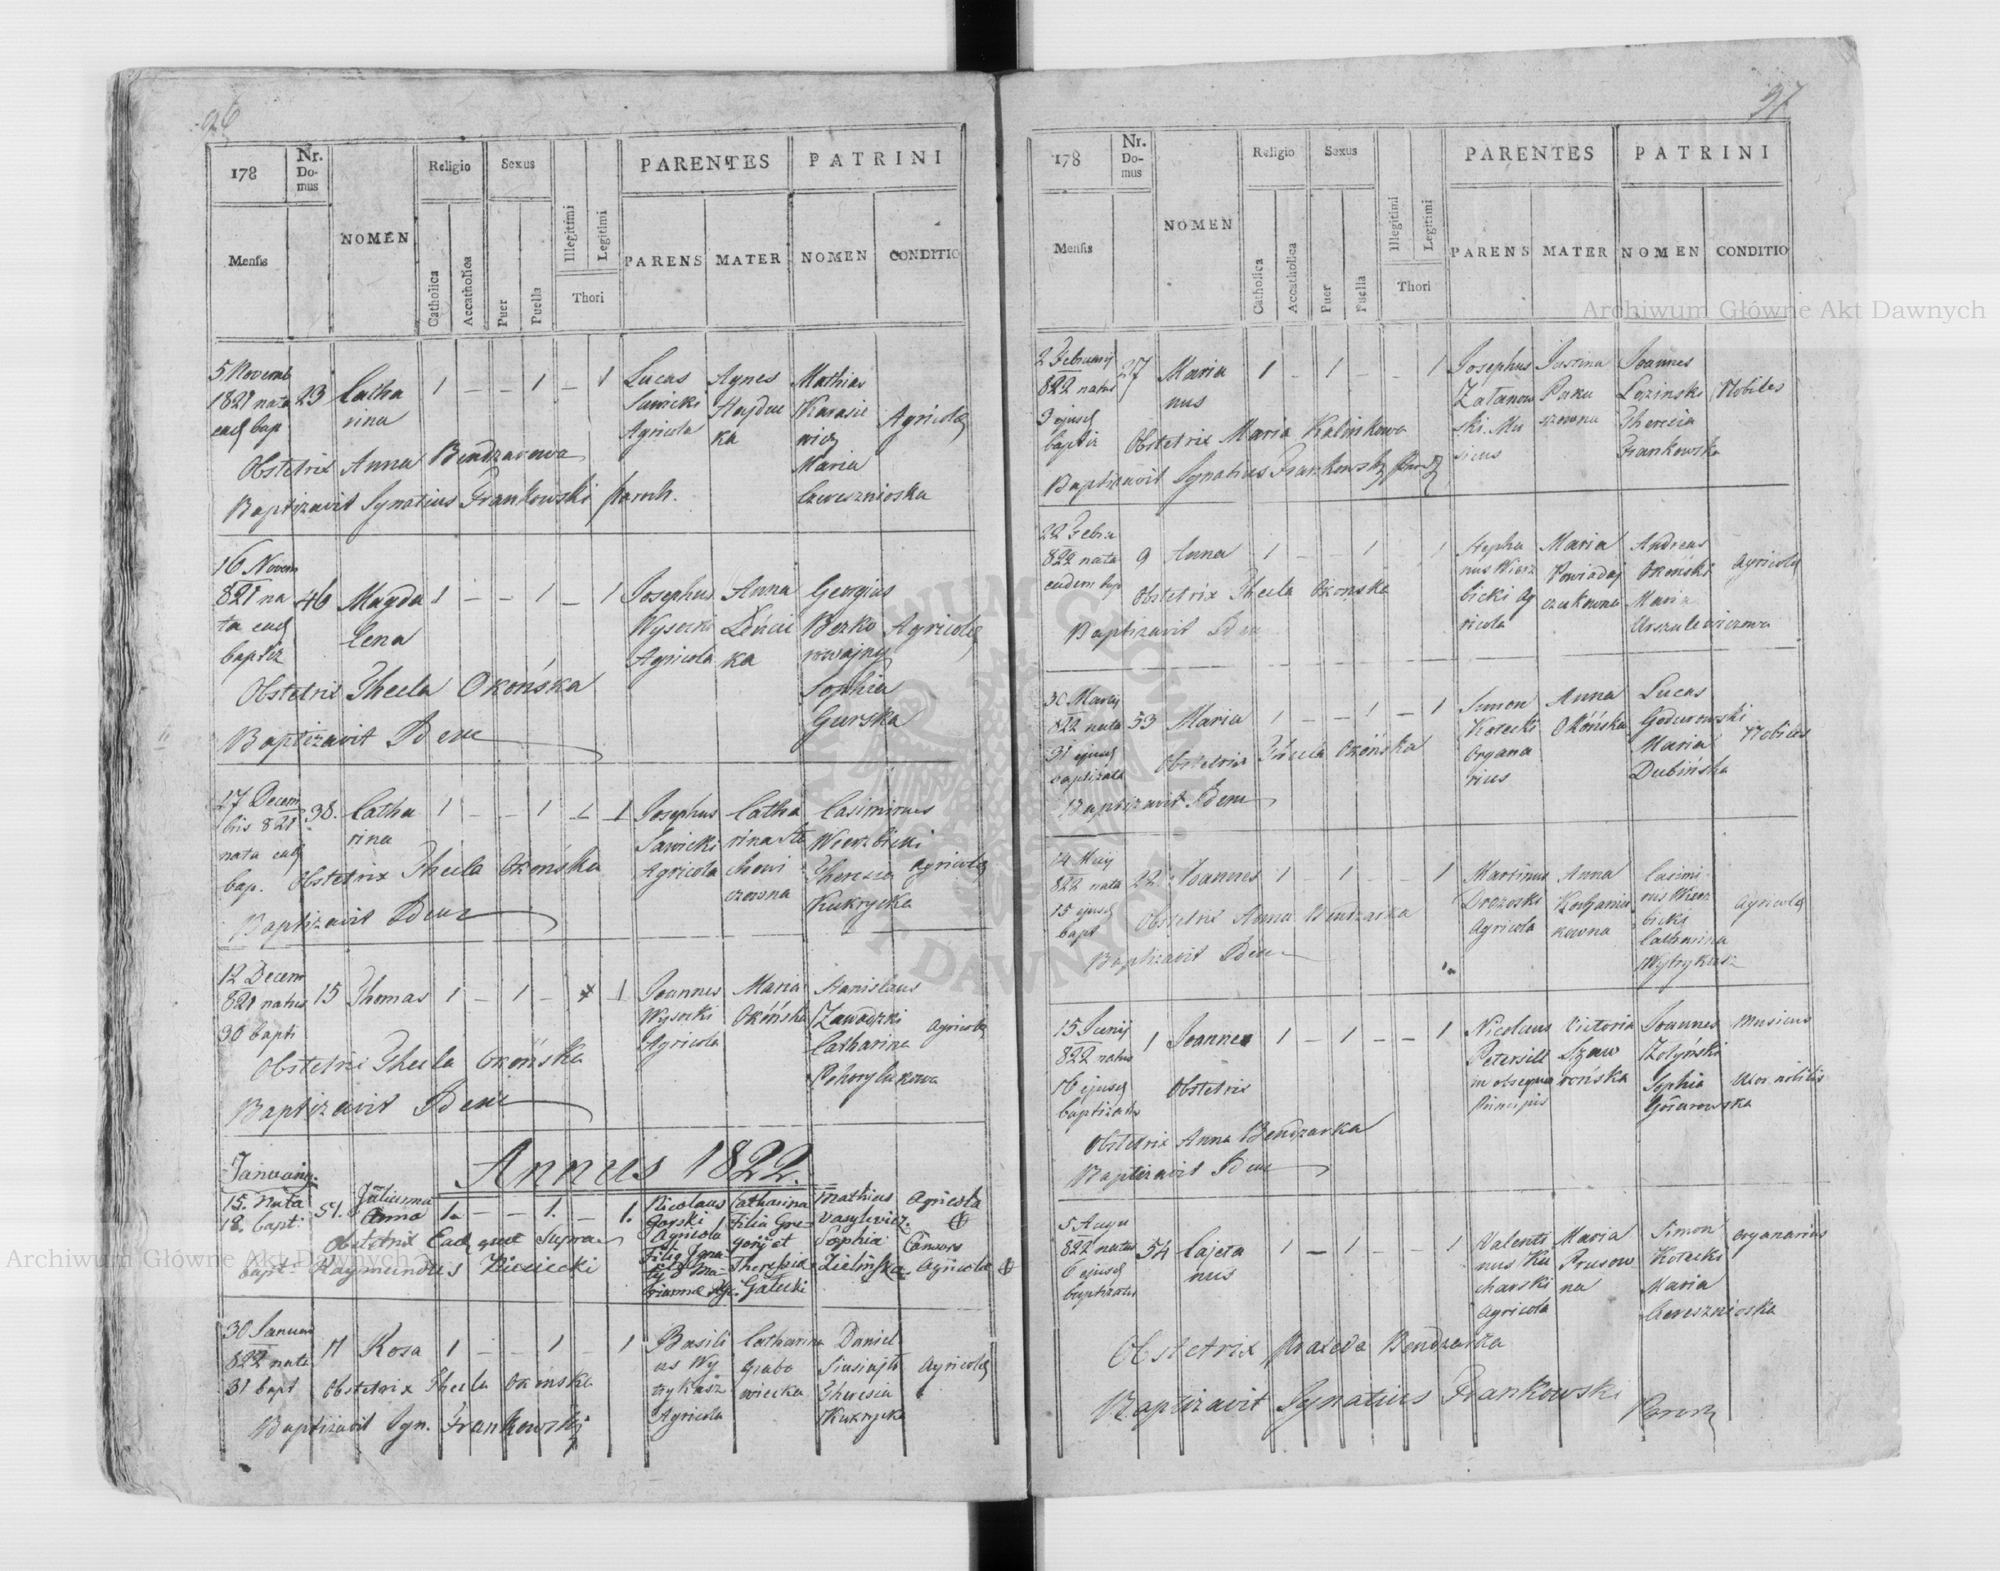 96
178
Nr. Domus
NOMEN
Religio
Sexus
PARENTES
PATRINI
Mensis
Catholica
Accatholica
Puer
Puella
Illegitimi
Legitimi
Thori
PARENS
MATER
NOMEN
CONDITIO
5 Novemb 1821 nata ead bap
23
Catha rina
1 – – 1 – 1
Lucas Sawicki Agricola
Agnes Hajduc ka
Mathias Karasie wicz Maria
Agricolae
Obstetrix Anna Bendzarowa
Baptizavit Ignatius Frankowski Paroch.
16 Novem 821 na ta ead baptiz
46
Magda lena
1 – – 1 – 1
Josephus Wysocki Agricola
Anna ka
Georgius Sophia Gurska
Agricolae
Obstetrix Thecla Okońska
Baptizavit Idem
27 Decem bris 821 nata ead bap.
38.
Catha rina
1 – – 1 – 1
Josephus Sawicki Agricola
Catha rina
Casimirus Wierzbicki Theresia Kukrycka
Agricolae
Obstetrix Thecla Okońska
Baptizavit Idem
12 Decem 821 natus 30 bapti
15
Thomas
1 – 1 – 1
Joannes Wysocki Agricola
Maria Okońska
Stanislaus Zawadzki Catharina Pohorylukowa
Agricolae
Obstetrix Thecla Okońska
Baptizavit Idem
Annus 1822.
Januarij.
15. Nata 18. bapt:
51.
Julianna Anna
1. – – 1. – 1.
Nicolaus Gorski Agricola
Catharina Filia Gre- gorij et Theressiae Gałecki
Mathias Vasylwicz. Sophia Zielińska
Agricola
Consors Agricolae
Obstetrix Eadem quae Supra
bapt: Raymundus
30 Januar 822 nata 31 bapt
11
Rosa
1 – – 1 – 1
Basili us Wy trykasz Agricola
Catharina Grabo wiecka
Daniel Theresia Kukrycka
Agricolae
Obstetrix Thecla Okońska
Baptizavit Ign. Frankowski
97
178
Nr. Domus
NOMEN
Religio
Sexus
PARENTES
PATRINI
Mensis
Catholica
Accatholica
Puer
Puella
Illegitimi
Legitimi
Thori
PARENS
MATER
NOMEN
CONDITIO
2 Februarij 822 natus 3 ejusd baptiz
27
Maria nus
1 – 1 – – 1
Josephus Załanow ski. Mu sicus
Justina Paku szowna
Joannes Lozinski Theresia Frankowska
Nobiles
Obstetrix Maria Kalinkowa
Baptizavit Ignatius Frankowski
22 Febru 822 nata eadem bap
9
Anna
1 – – 1 1
Stepha nus Wierz bicki Ag ricola
Maria
Andreas Okoński Maria Urszulewiczowa
Agricolae
Obstetrix Thecla Okonska
Baptizavit Idem
30 Martij 822 nata 31 ejusd baptizata
53
Maria
1 – – 1 – 1
Simon Kotecki Organa rius
Anna Okońska
Lucas Godurowski Maria Dubińska
Nobiles
Obstetrix Thecla Okońska
Baptizavit Idem
14 Maij 822 nata 15 ejusd bapt
22
Joannes
1 – 1 – – 1
Martinus Drozoski Agricola
Anna
Casimi rus Wierz bicki Catharina Wytrykasz
Agricolae
Obstetrix Anna Bendzarka
Baptizavit Idem
15 Junij 822 natus 16 ejusd baptizatus
1
Joannes
1 – 1 – – 1
Nicolaus Petersill in obsequio Principis
Victoria Szaw rońska
Joannes Zołyński Sophia Godurowska
Musicus
Uxor nobilis
Obstetrix
Obstetrix Anna Bendzarka
Baptizavit Idem
5 Augu 822 natus 6 ejusd baptizatus
54
Cajeta nus
1 – 1 – – 1
Valenti nus Ku charski Agricola
Maria Prusow na
Simon Kotecki Maria
Organarius
Obstetrix Praxeda Bendzarka
Baptizavit Ignatius Frankowski
Archiwum Główne Akt Dawnych
Archiwum Główne Akt Dawnych